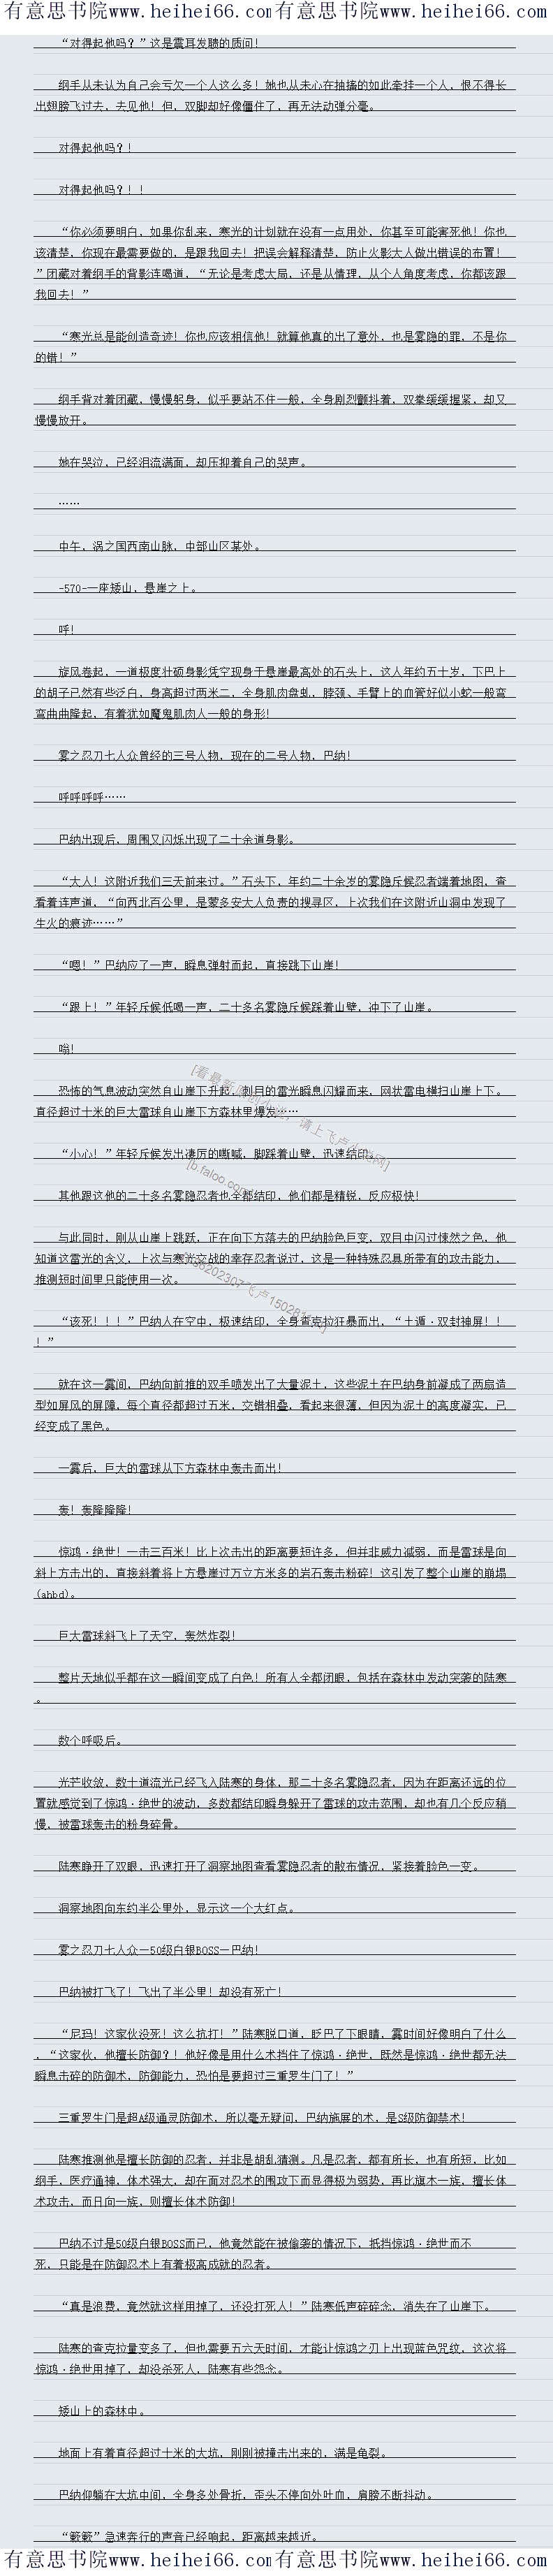 有意思书院www.heihei66.com 有意思书院www.heihei66.com
“对得起他吗？”这是震耳发聩的质问！
纲手从未认为自己会亏欠一个人这么多！她也从未心在抽搐的如此牵挂一个人，恨不得长
出翅膀飞过去，去见他！但，双脚却好像僵住了，再无法动弹分毫。
对得起他吗？！
对得起他吗？！！
“你必须要明白，如果你乱来，寒光的计划就在没有一点用处，你甚至可能害死他！你也
该清楚，你现在最需要做的，是跟我回去！把误会解释清楚，防止火影大人做出错误的布置！
”团藏对着纲手的背影连喝道，“无论是考虑大局，还是从情理，从个人角度考虑，你都该跟
我回去！”
“寒光总是能创造奇迹！你也应该相信他！就算他真的出了意外，也是雾隐的罪，不是你
的错！”
纲手背对着团藏，慢慢躬身，似乎要站不住一般，全身剧烈颤抖着，双拳缓缓握紧，却又
慢慢放开。
她在哭泣，已经泪流满面，却压抑着自己的哭声。
……
中午，涡之国西南山脉，中部山区某处。
-570-一座矮山，悬崖之上。
呼！
旋风卷起，一道极度壮硕身影凭空现身于悬崖最高处的石头上，这人年约五十岁，下巴上
的胡子已然有些泛白，身高超过两米二，全身肌肉盘虬，脖颈、手臂上的血管好似小蛇一般弯
弯曲曲隆起，有着犹如魔鬼肌肉人一般的身形！
雾之忍刀七人众曾经的三号人物，现在的二号人物，巴纳！
呼呼呼呼……
巴纳出现后，周围又闪烁出现了二十余道身影。
“大人！这附近我们三天前来过。”石头下，年约二十余岁的雾隐斥候忍者端着地图，查
看着连声道，“向西北百公里，是蒙多安大人负责的搜寻区，上次我们在这附近山洞中发现了
生火的痕迹……”
“嗯！”巴纳应了一声，瞬息弹射而起，直接跳下山崖！
“跟上！”年轻斥候低喝一声，二十多名雾隐斥候踩着山壁，冲下了山崖。
嗡！
恐怖的气息波动突然自山崖下升起，刺目的雷光瞬息闪耀而来，网状雷电横扫山崖上下。
直径超过十米的巨大雷球自山崖下方森林里爆发……
“小心！”年轻斥候发出凄厉的嘶喊，脚踩着山壁，迅速结印。
其他跟这他的二十多名雾隐忍者也全都结印，他们都是精锐，反应极快！
与此同时，刚从山崖上跳跃，正在向下方落去的巴纳脸色巨变，双目中闪过悚然之色，他
知道这雷光的含义，上次与寒光交战的幸存忍者说过，这是一种特殊忍具所带有的攻击能力，
推测短时间里只能使用一次。
“该死！！！”巴纳人在空中，极速结印，全身查克拉狂暴而出，“土遁·双封神屏！！
！”
就在这一霎间，巴纳向前推的双手喷发出了大量泥土，这些泥土在巴纳身前凝成了两扇造
型如屏风的屏障，每个直径都超过五米，交错相叠，看起来很薄，但因为泥土的高度凝实，已
经变成了黑色。
一霎后，巨大的雷球从下方森林中轰击而出！
轰！轰隆隆隆！
惊鸿·绝世！一击三百米！比上次击出的距离要短许多，但并非威力减弱，而是雷球是向
斜上方击出的，直接斜着将上方悬崖过万立方米多的岩石轰击粉碎！这引发了整个山崖的崩塌
(ahbd)。
巨大雷球斜飞上了天空，轰然炸裂！
整片天地似乎都在这一瞬间变成了白色！所有人全都闭眼，包括在森林中发动突袭的陆寒
。
数个呼吸后。
光芒收敛，数十道流光已经飞入陆寒的身体，那二十多名雾隐忍者，因为在距离还远的位
置就感觉到了惊鸿·绝世的波动，多数都结印瞬身躲开了雷球的攻击范围，却也有几个反应稍
慢，被雷球轰击的粉身碎骨。
陆寒睁开了双眼，迅速打开了洞察地图查看雾隐忍者的散布情况，紧接着脸色一变。
洞察地图向东约半公里外，显示这一个大红点。
雾之忍刀七人众—50级白银BOSS—巴纳！
巴纳被打飞了！飞出了半公里！却没有死亡！
“尼玛！这家伙没死！这么抗打！”陆寒脱口道，眨巴了下眼睛，霎时间好像明白了什么
，“这家伙，他擅长防御？！他好像是用什么术挡住了惊鸿·绝世，既然是惊鸿·绝世都无法
瞬息击碎的防御术，防御能力，恐怕是要超过三重罗生门了！”
三重罗生门是超A级通灵防御术，所以毫无疑问，巴纳施展的术，是S级防御禁术！
陆寒推测他是擅长防御的忍者，并非是胡乱猜测。凡是忍者，都有所长，也有所短，比如
纲手，医疗通神，体术强大，却在面对忍术的围攻下而显得极为弱势，再比旗木一族，擅长体
术攻击，而日向一族，则擅长体术防御！
巴纳不过是50级白银BOSS而已，他竟然能在被偷袭的情况下，抵挡惊鸿·绝世而不
死，只能是在防御忍术上有着极高成就的忍者。
“真是浪费，竟然就这样用掉了，还没打死人！”陆寒低声碎碎念，消失在了山崖下。
陆寒的查克拉量变多了，但也需要五六天时间，才能让惊鸿之刃上出现蓝色咒纹，这次将
惊鸿·绝世用掉了，却没杀死人，陆寒有些怨念。
矮山上的森林中。
地面上有着直径超过十米的大坑，刚刚被撞击出来的，满是龟裂。
巴纳仰躺在大坑中间，全身多处骨折，歪头不停向外吐血，肩膀不断抖动。
“簌簌”急速奔行的声音已经响起，距离越来越近。
有意思书院www.heihei66.com 有意思书院www.heihei66.com